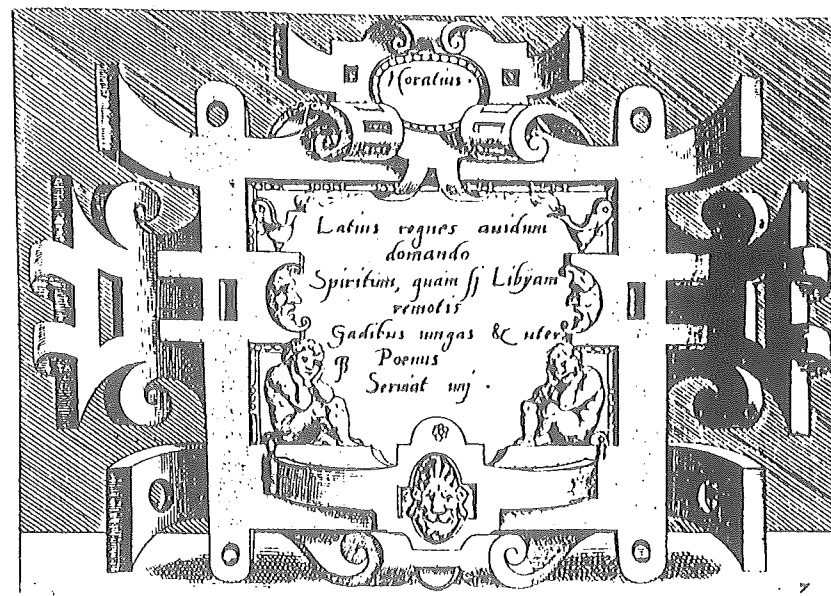 Horatius.
Latius regnes auidum
domando
Spiritum, quam sj Libÿam
remotis
Gadibus iungas & uter
qȝ Poenus
Seruiat unj.
7